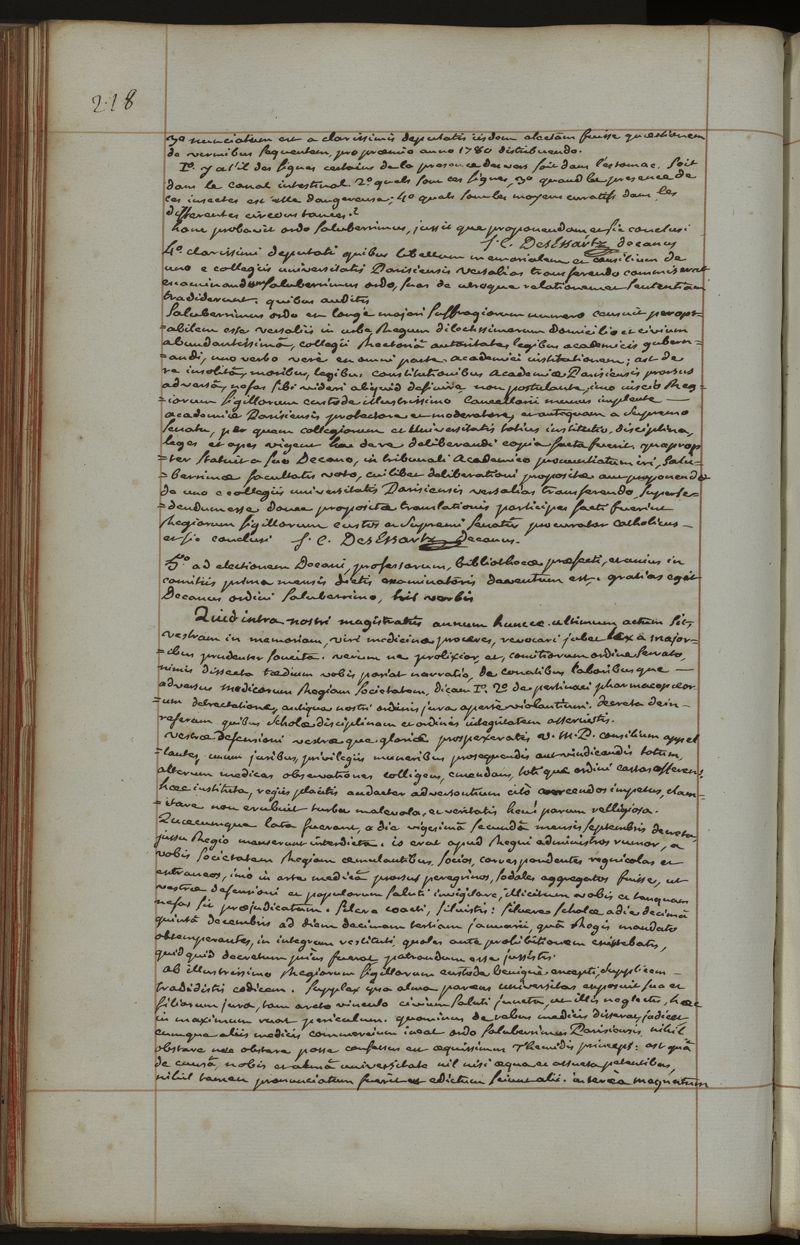 218
3º nunciatum est a clarissimis deputatis iisdem electam fuisse quæstionem
de vermibus sequentem, pro præmio anno 1780 distribuendo.
1º. y a t'il des signes certains de la presence des vers soit dans l'estomac, soit
dans le canal intestinal 2º quels sont ces signes, 3º quand la presence de
ces insectes est elle dangereuse; 4º quels sont les moyens curatifs dans les
differentes circonstances?
hanc probavit ordo saluberrimus, jussit que proponendam et sic conclusi
J. C. DesEssartz decanus
4º clarissimi deputati quibus libellum memorialem et consilium de
uno e collegiis universitatis Parisiensis versalias transferendo commiserat
examinandum saluberrimus ordo, suos de utroque relationem et sententiam
tradiderunt. quibus auditis
Saluberrimus ordo et longe majori suffragiorum numero censuit peropt-
-abilem esse versaliis in urbe, Regum dilectissimorum domicilio et civium
abundantissimâ, collegii erectionem autoritate, legibus academicis gubern-
-andi, uno verbo verè ex omni parte academici institutionem; ast de
re insolitâ, moribus, legibus, constitutionibus Academiæ Parisiensis prorsus
adversâ, nefas sibi videri aliquid definire non postulante, imo inscio Reg-
-iorum sigillorum custode illustrissimo Cancellarii munus implente —
academiæ Parisiensis protectore et moderatore, et antequam a supremo
senatu, per quem collegiorum et Universitatis totius institutio, disciplina,
leges et opes vigent hac de re deliberandi copia facta fuerit, quaprop-
-ter statuit a suo Decano, in tribunali Academico pronuntiatum iri, salu-
-berrimæ facultatis voto, cuilibet deliberationi propositæ aut proponendæ
de uno e collegiis universitatis Parisiensis versalias transferendo, superse-
-dendum esse donec propositæ translationis participes facti fuerint
Regiorum sigillorum custos et supremi senatus procurator catholicus —
et sic conclusi J. C. DesEssartz Decanus.
5º ad electionem Decani, professorum, bibliothecæ præfecti, et unius in
comitiis prima mensis dictis examinatoris deventum est. gratias egit
Decanus ordini saluberrimo, his verbis
Quid intra nostri magistratûs annum huncce ultimum actum sit,
vestram in memoriam, viri medicinæ proceres, revocari jubet lex a major-
-ibus prudenter sancita. verum ne prolixior, et, comitiorum ordine servato,
nimis dissecta tædium vobis pariat narratio, de conatibus laboribusque —
adversus medicorum Regiam societatem, dicam 1º. 2º de pertinaci pharmacopœor-
-um detrectatione, antiqua nostri ordinis jura apertè violantium. decreta dein-
referam quibus scholæ disciplinam et ordinis integritatem asseruistis.
vestræ defensioni vestræ que gloriæ prospexeratis V. M. D. consilium appel-
-lantes, unum juribus, privilegiis muneribus prosequendis aut vindicandis totum,
alterum medicas observationes colligens, emendans, toti que ordini castas offerens,
hæc instituta, regiis placitis audacter adversantium citò coercendos impetus, clam-
-itare non erubuit turba malevola, et veritatis heu! parum relligiosa.
Quæcumque lata fuerant, a die vigesimâ secundâ mensis septembris decreta,
jussu Regio manserunt interdicta. is erat apud Regni administros rumor, a
vobis societatem Regiam æmulantibus, socios, correspondentes regnicolas et
extraneos, imò in arte medicâ prorsus peregrinos, sodales aggregatos fuisse, ut
vestræ defensioni et populorum saluti invigilare, illicitum vobis et tanquam
nefas sit præjudicatum. silere coacti, siluistis: siluere scholæ a die decimâ
quintâ decembris ad diem decimam tertiam januarii, quâ Regis mandato
obtemperantes, in integrum restituti, quales ante prohibitionem existebatis,
quidquid decretum priùs fuerat patrandum esse jussistis.
ab illustrissimo Regiorum sigillorum custode benignè excepti, supplicem —
tradidistis codicem. supplex quo alma parens universitas exposuit sua et
filiorum jura, tam arcto vinculo civium saluti juncta, ut illis neglectis, hæc
in maximum ruat periculum. quominus de rebus medicis disserat, judicet
cumque aliis medicis commercium ineat ordo saluberrimus Parisiensis, nihil
obstare nec obstare posse confessus est æquissimus Themidis princeps: ast quâ
de causâ, nobis et almâ universitate nil nisi æqua et assueta petentibus,
nihil tamen pronunciatum fuerit et edictum sciunt alii. interea magnatum